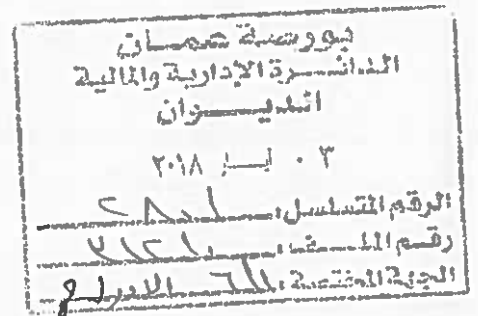 بورصة عمان
الدائرة الإدارية والمالية
الديوان
٠٣ أيار ٢٠١٨
الرقم المتسلسل: ٢٨٠١
رقم الملف:
الجهة المختصة: